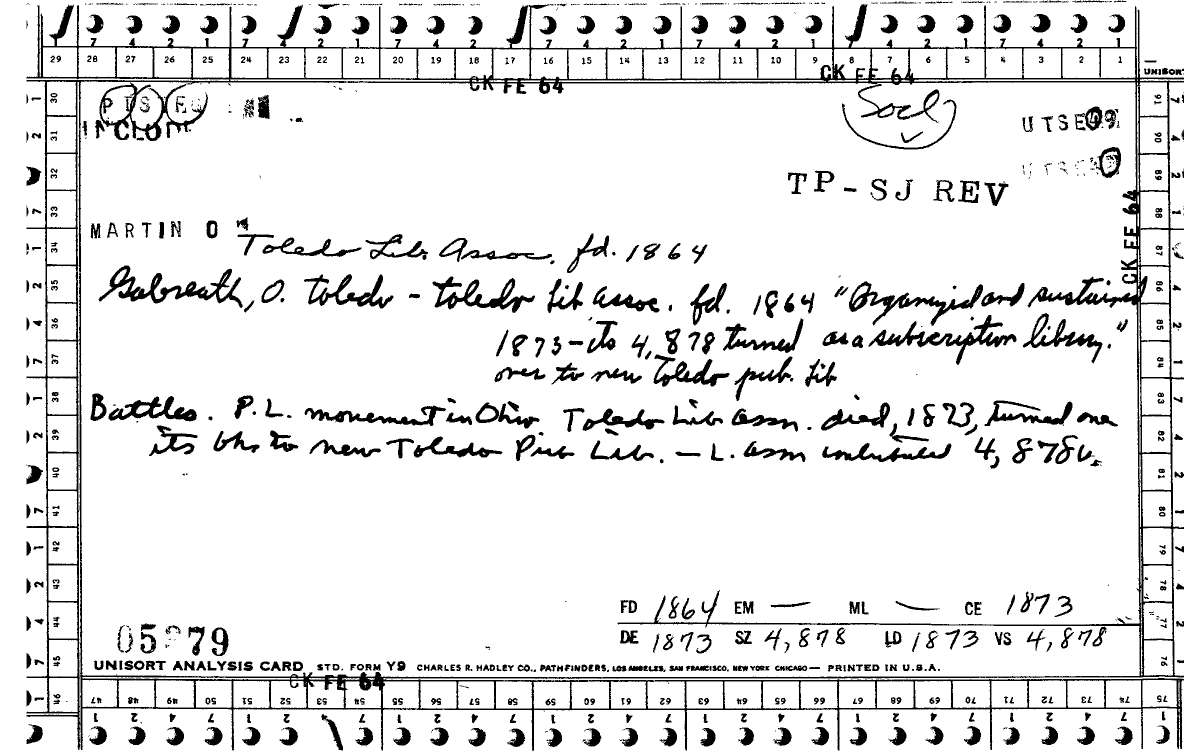 7 4 2 1 7 4 2 1 7 4 2 1 7 4 2 1 7 4 2 1 7 4 2 1 7 4 2 1
29 28 27 26 25 24 23 22 21 20 19 18 17 16 15 14 13 12 11 10 9 8 7 6 5 4 3 2 1
CK FE 64 CK FE 64
UNISORT
INCLUDE
Socl
TP-SJ REV
CK FE 64
MARTIN O
Toledo Lib Assoc. fd. 1864
Galbreath, O. Toledo - Toledo Lib Assoc. fd. 1864 "Organized and sustained
1873-its 4,878 turned as a subscription library."
over to new Toledo pub. Lib
Battles. P.L. movement in Ohio Toledo Lib assn. died, 1873, turned over
its bks to new Toledo Pub Lib. - L. assn contributed 4,878v.
FD 1864 EM — ML — CE 1873
DE 1873 SZ 4,878 LD 1873 VS 4,878
UNISORT ANALYSIS CARD STD. FORM Y9 CHARLES R. HADLEY CO., PATHFINDERS, LOS ANGELES, SAN FRANCISCO, NEW YORK CHICAGO — PRINTED IN U.S.A.
CK FE 64
47 48 49 50 51 52 53 54 55 56 57 58 59 60 61 62 63 64 65 66 67 68 69 70 71 72 73 74 75